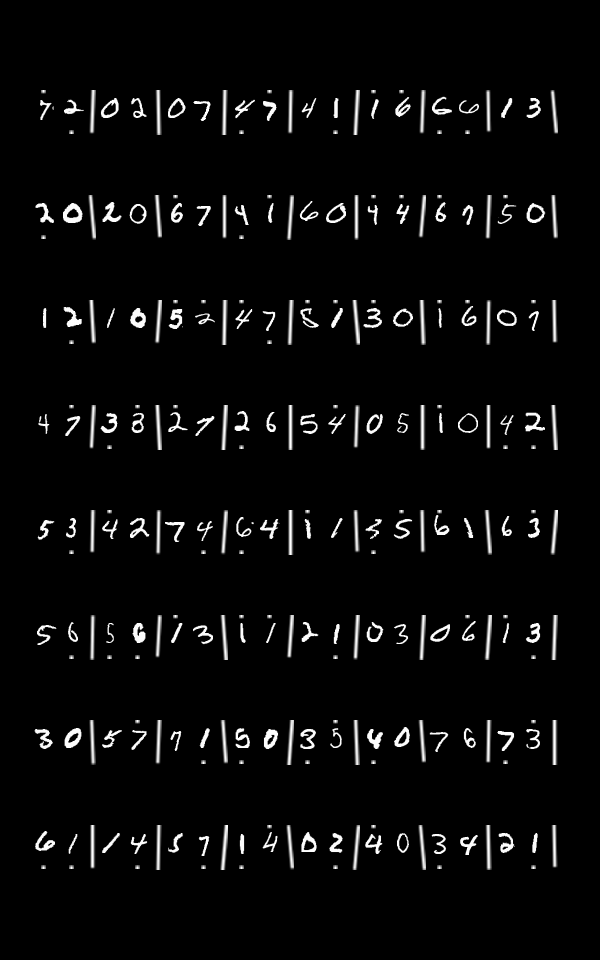 7 2 | 0 2 | 0 7 | 4 7 | 4 1 | 1 6 | 6 6 | 1 3 |
2 0 | 2 0 | 6 7 | 4 1 | 6 0 | 4 4 | 6 7 | 5 0 |
1 2 | 1 0 | 5 2 | 4 7 | 5 1 | 3 0 | 1 6 | 0 7 |
4 7 | 3 3 | 2 7 | 2 6 | 5 4 | 0 5 | 1 0 | 4 2 |
5 3 | 4 2 | 7 4 | 6 4 | 1 1 | 3 5 | 6 1 | 6 3 |
5 6 | 5 6 | 1 3 | 1 1 | 2 1 | 0 3 | 0 6 | 1 3 |
3 0 | 5 7 | 7 1 | 5 0 | 3 5 | 4 0 | 7 6 | 7 3 |
6 1 | 1 4 | 5 7 | 1 4 | 0 2 | 4 0 | 3 4 | 2 1 |